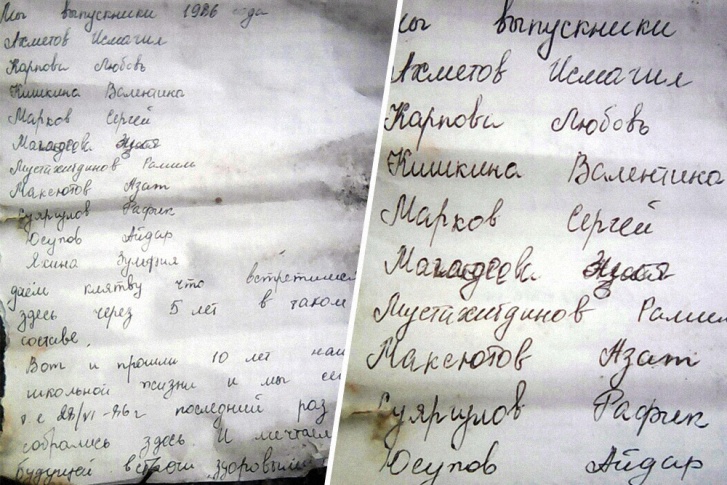 Мы выпускники 1986 года
Ахметов Исмагил
Карпова Любовь
Кишкина Валентина
Марков Сергей
Магадеева
Мустахитдинов Рамил
Максютов Азат
Суяргулов Рафик
Юсупов Айдар
Яхина Зульфия
даем клятву что встретимся
здесь через 5 лет в таком
составе.
Вот и прошли 10 лет на
школьной жизни и мы се
последний раз
собрались здесь И мечтаем
будущей встречи здоровыми
мы выпускники
Ахметов Исмагил
Карпова Любовь
Кишкина Валентина
Марков Сергей
Магадеева
Мустахитдинов Рамил
Максютов Азат
Суяргулов Рафик
Юсупов Айдар